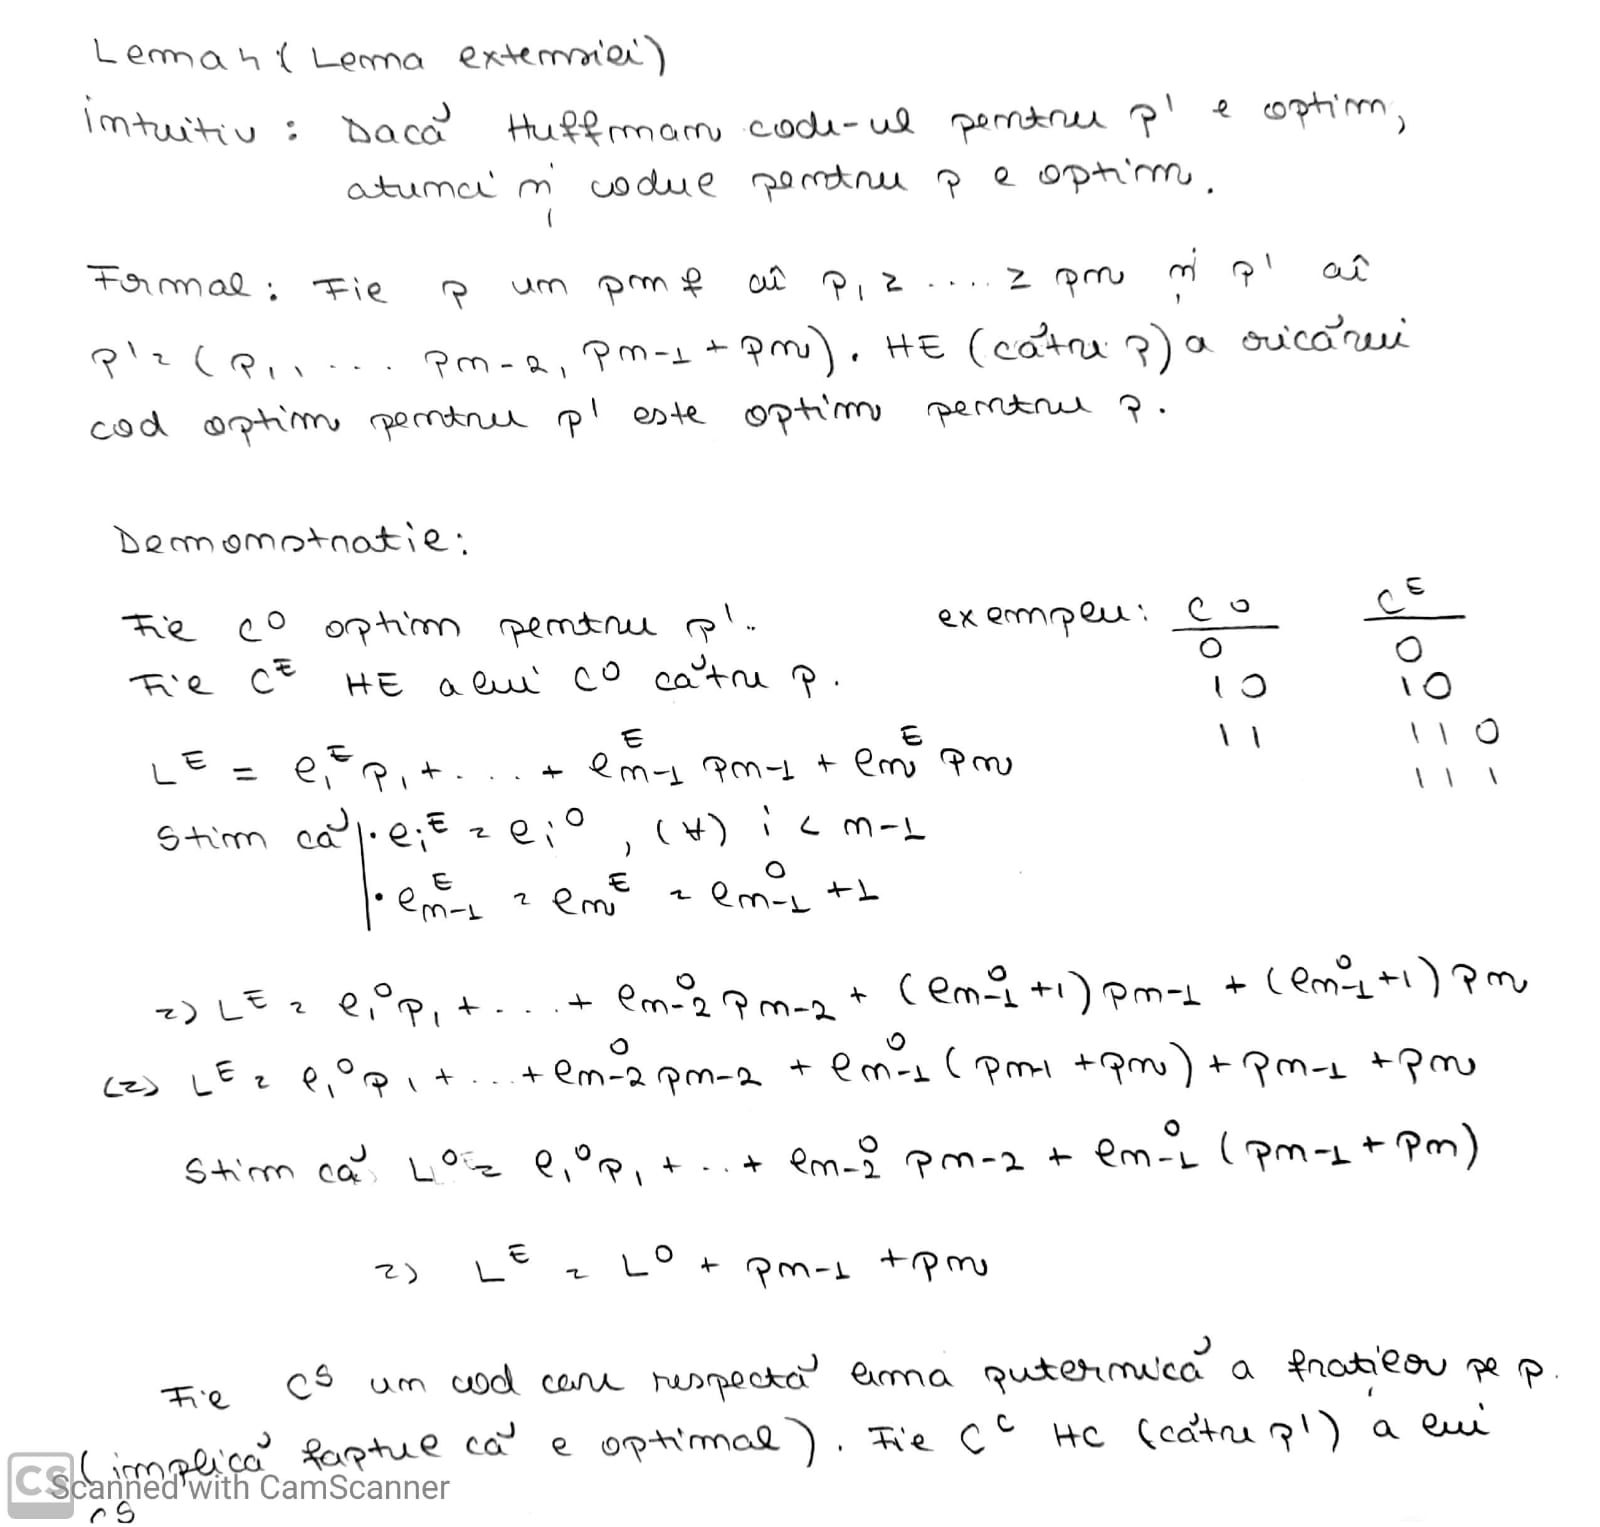 Lema 4 ( Lema extensiei )
intuitiv : Dacă Huffman code-ul pentru p' e optim,
atunci și codul pentru p e optim.
Formal : Fie p un pmf aî p₁ ≥ .... ≥ pn și p' aî
p' = (p₁, ... pn-2, pn-1 + pn). HE (către p) a oricărui
cod optim pentru p' este optim pentru p.
Demonstratie :
Fie C^O optim pentru p'.
exemplu : C^O C^E
Fie C^E HE a lui C^O către p.
0 0
10 10
11 110
111
L^E = l₁^E p₁ + ... + l_{n-1}^E pn-1 + l_n^E pn
Stim că | • l_i^E = l_i^O , (∀) i < n-1
• l_{n-1}^E = l_n^E = l_{n-1}^O + 1
=> L^E = l₁^O p₁ + ... + l_{n-2}^O pn-2 + (l_{n-1}^O +1) pn-1 + (l_{n-1}^O +1) pn
(=) L^E = l₁^O p₁ + ... + l_{n-2}^O pn-2 + l_{n-1}^O (pn-1 + pn) + pn-1 + pn
Stim că L^O = l₁^O p₁ + ... + l_{n-2}^O pn-2 + l_{n-1}^O (pn-1 + pn)
=> L^E = L^O + pn-1 + pn
Fie C^S un cod care respectă lema puternică a fratilor pe p.
(implică faptul că e optimal). Fie C^C HC (către p') a lui
C^S
CS Scanned with CamScanner